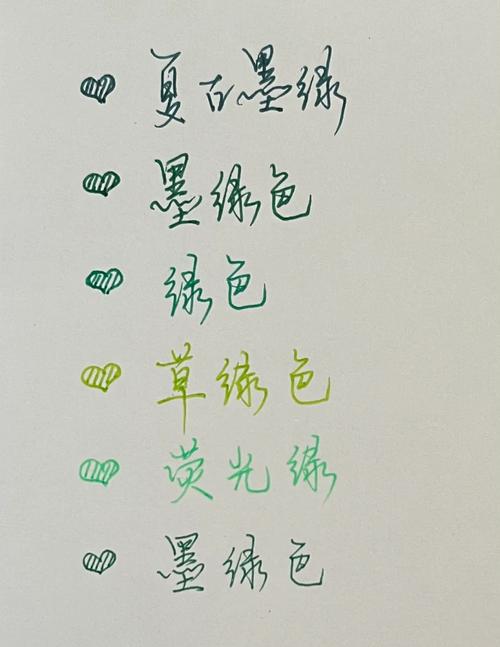 复古墨绿
墨绿色
绿色
草绿色
荧光绿
墨绿色